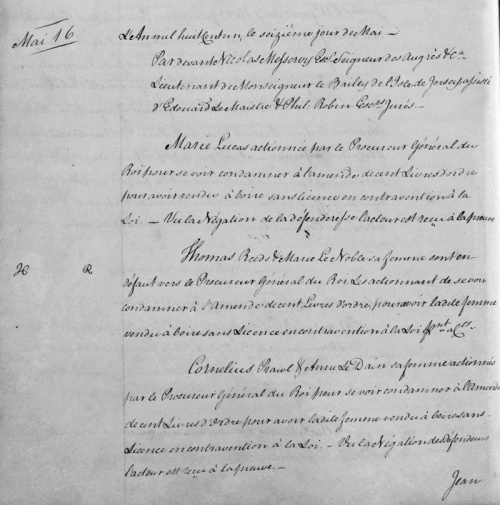 Mai 16
L'An mil huit Cent un, le seizième jour de Mai —
Par devant Nicolas Messervy Ecr. Seigneur des Augrès &Ca.
Lieutenant de Monseigneur le Bailly de l'Isle de Jersey assisté
d'Edouard Le Maistre & Phil. Robin Ecrs. Jurés. —
Marie Lucas actionnée par le Procureur Général du
Roi pour se voir condamner à l'amende de cent Livres d'ordre
pour avoir vendu à boire sans licence en contravention à la
Loi. — Vu la Négation de la défenderesse l'acteur est reçu à la preuve
Thomas Reeds & Marie Le Noble sa femme sont en
H R
défaut vers le Procureur Général du Roi les actionnant de se voir
condamner à l'Amende de cent Livres d'ordre, pour avoir ladite femme
vendu à boire sans Licence en contravention à la Loi
Cornelius Prawl & Anne Le Dain sa femme actionnés
par le Procureur Général du Roi pour se voir condamner à l'amende
de cent Livres d'ordre pour avoir ladite femme vendu à boire sans
Licence en contravention à la Loi. — Vu la Négation des Défendeurs
l'acteur est reçu à la preuve. —
Jean